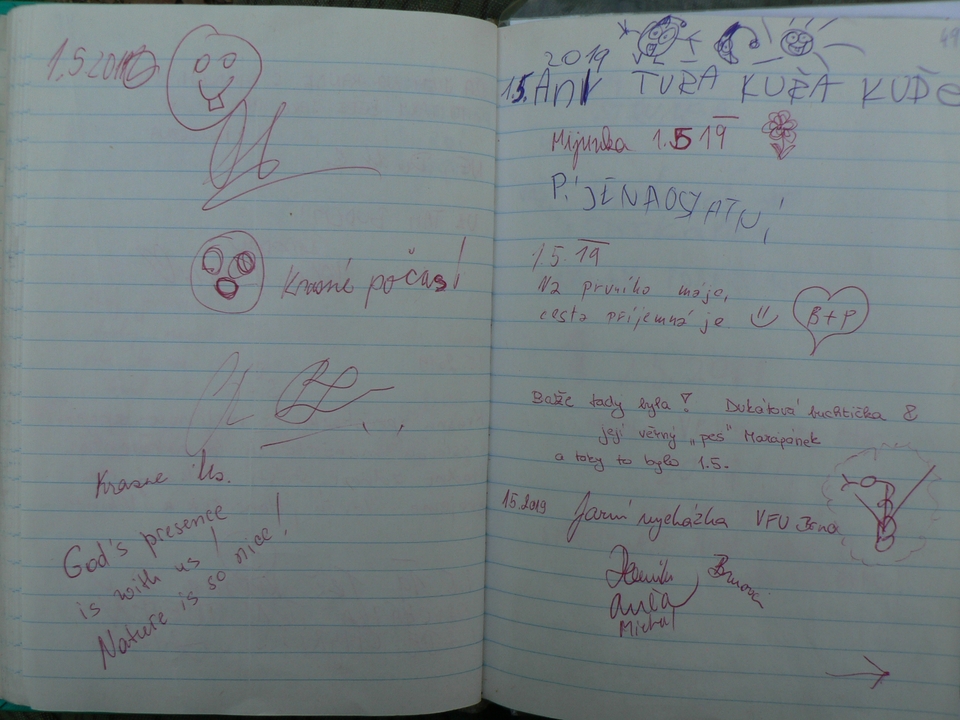 1.5 2019
Krásné počasí!
Krasne
God's presence
is with us!
Nature is so nice!
2019
1.5. TURA KUŘA KUDE
1.5 19
P. JE NA OSTATNÍ
1.5 19
Na prvního máje,
cesta příjemná je
B+P
Baže tady byla! Dukátová buchtička &
její věrný „pes" Marapánek
a taky to bylo 1.5.
1.5.2019 Jarní vycházka VFU Brno
Anča
Michal